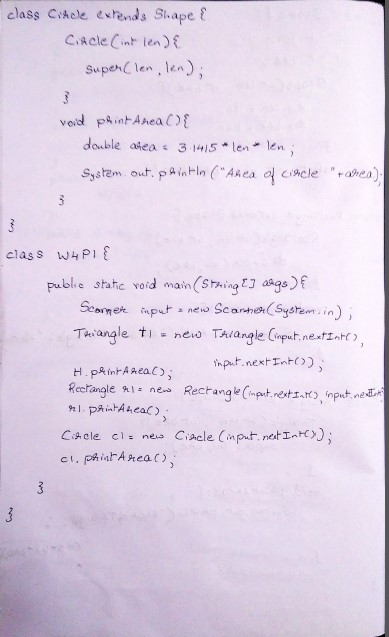 class Circle extends Shape {
Circle(int len){
super(len, len);
}
void printArea(){
double area = 3.1415 * len * len;
System.out.println("Area of circle "+area);
}
}
class W4P1 {
public static void main(String[] args){
Scanner input = new Scanner(System.in);
Triangle t1 = new Triangle(input.nextInt(),
input.nextInt());
t1.printArea();
Rectangle r1 = new Rectangle(input.nextInt(), input.nextInt
r1.printArea();
Circle c1 = new Circle(input.nextInt());
c1.printArea();
}
}